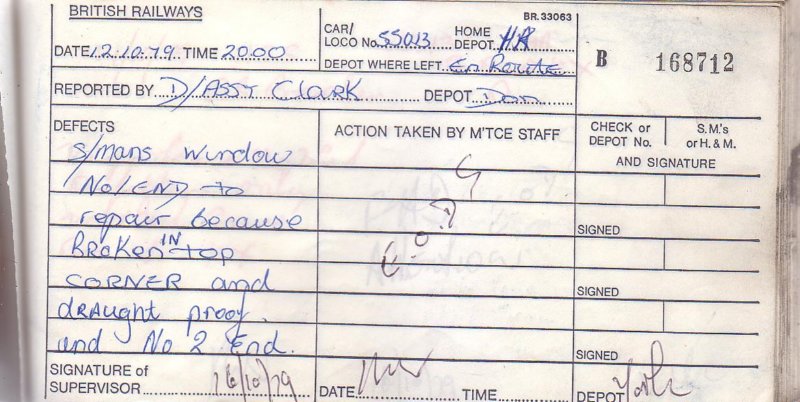 BRITISH RAILWAYS
BR.33063
DATE 12.10.79 TIME 2000
CAR/LOCO No. 55013
HOME DEPOT. HA
DEPOT WHERE LEFT. En Route
B 168712
REPORTED BY D/ASST Clark DEPOT Don
DEFECTS
ACTION TAKEN BY M'TCE STAFF
CHECK or DEPOT No.
S.M's or H. & M.
AND SIGNATURE
s/mans window
No/END to
repair because
BRoKen IN top
CORNER and
dRAught proof.
and No 2 End.
SIGNED
SIGNED
SIGNED
SIGNATURE of SUPERVISOR 16/10/79
DATE TIME
DEPOT York